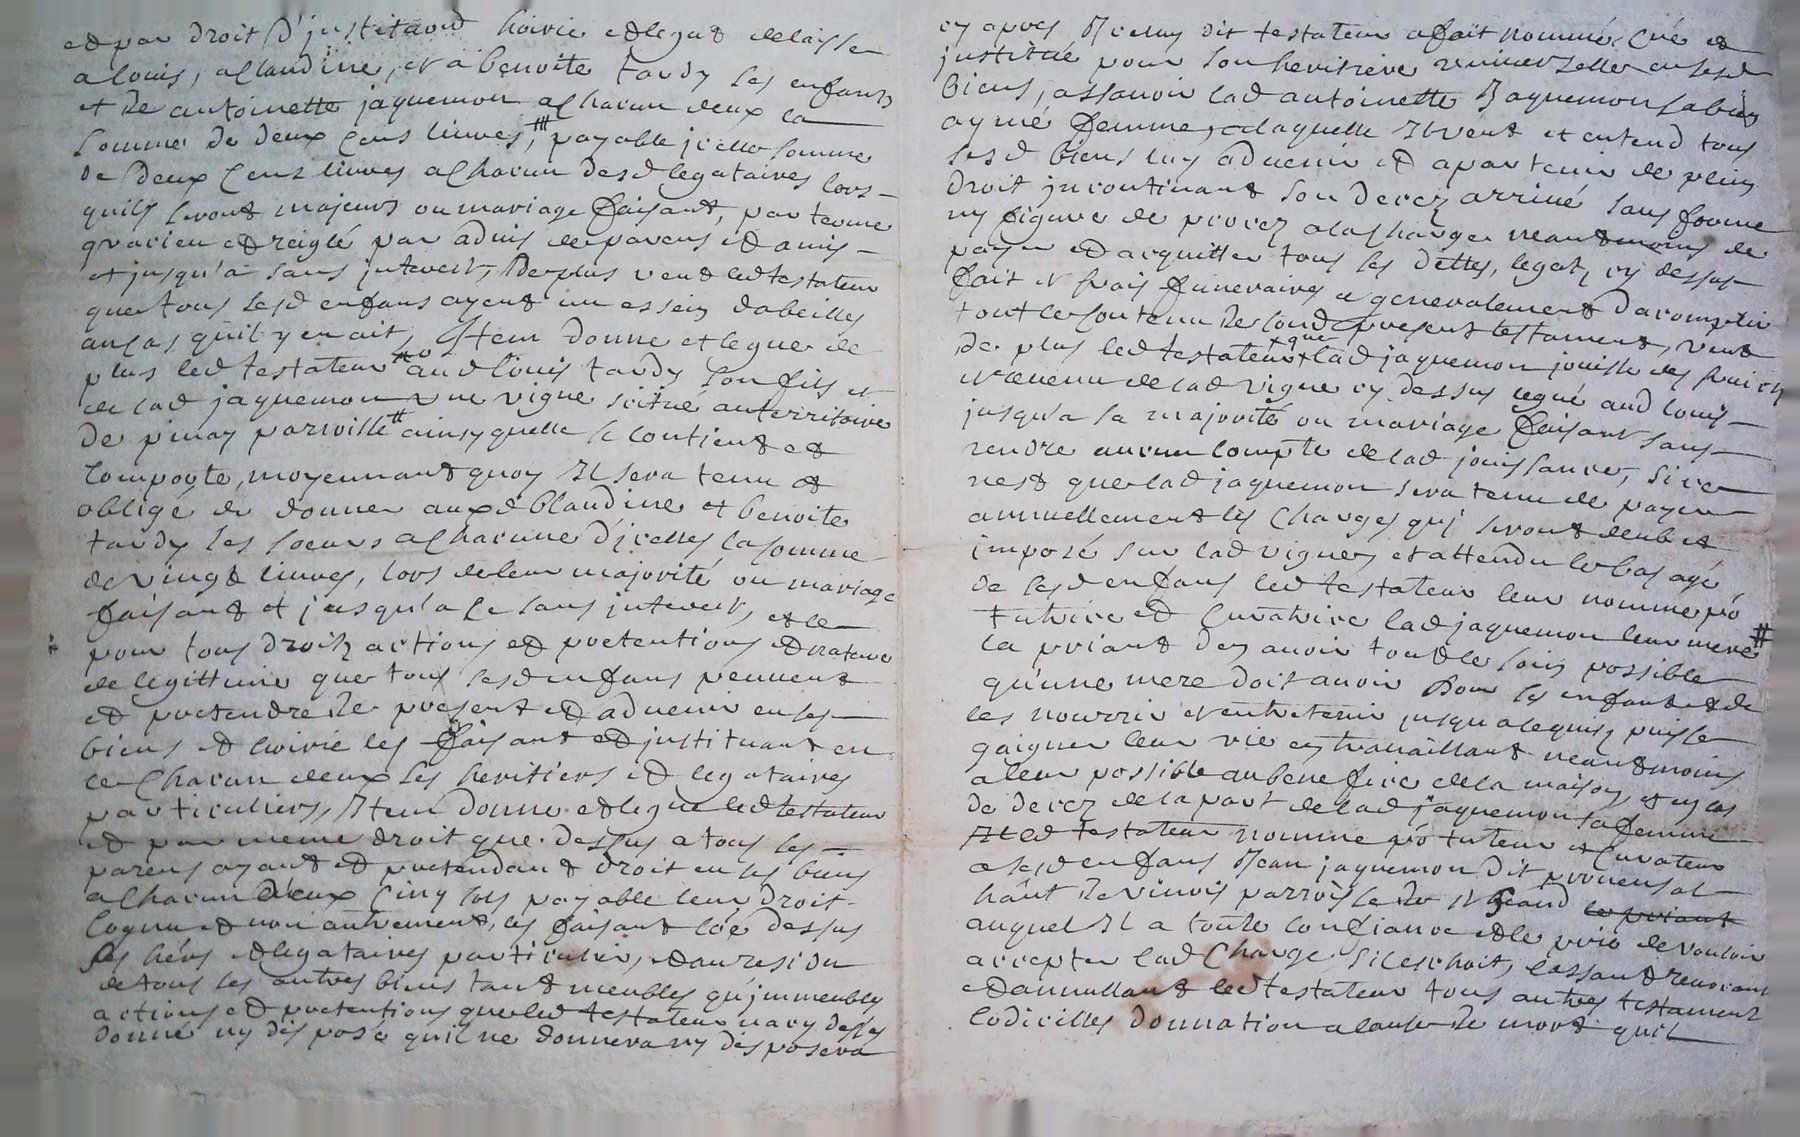 et par droit d'justitaõn hoirie et legat delaisse
a louis, a Claudine, et a benoite tardy ses enfants
et de antoinette jaquemon a Chacun deux la
somme de deux Cens liures, # payable jcelle somme
de deux Cens liures a Chacun desd legataires lors
quils seront majeurs ou mariage faisant, par terme
gracieu et reiglé par aduis de parens et amis
et jusqu'a sans jnterest, De plus veut led testateur
que tous sesd enfans ayent un essein dabeilles
au cas quil y en ait, Item donne et legue de
plus led testateur aud Louis tardy son fils et
de lad jaquemon une vigne scitué au territoire
de pinay parroisse # ainsy quelle se contient et
Comporte, moyennant quoy Il sera tenu et
obligé de donner aux d Blandine et benoite
tardy ses soeurs a Chacune d'jcelles la somme
de vingt liures, lors de leur majorité ou mariage
faisant et jusqu'a ce sans jnterest, et ce
pour tous droits actions et pretentions et nature
de legittime que tous sesd enfans peuuent
et pretendre de present et aduenir en ses
biens et hoirie les faisant et justituant en
ce Chacun deux ses heritiers et legataires
particuliers, Item donne et legue led testateur
et par meme droit que dessus a tous ses
parens ayant et pretendant droit en ses biens
a Chacun d'eux Cinq sols payable leur droit
Cognu et non autrement, les faisant Coe dessus
ses hérs et legataires particuliers, et au residu
de tous ses autres biens tant meubles qu'jmmeubles
actions et pretentions que led testateur n'a cy dessus
donné ny disposé quil ne donnera ny disposera
cy apres Icelluy dit testateur a fait nommé, Créé et
justitué pour son heritiere vniuerselle en sesd
biens, assauoir lad antoinette Jaquemon sa bien
aymé femme, a laquelle Il veut et entend tous
sesd biens luy aduenir et apartenir de plein
droit jncontinant son decez arriué sans forme
ny figure de procez a la Charge neantmoins de
payer et acquitter tous ses dettes, legatz cy dessus
fait et frais funeraires et generalement dacomplir
tout le Contenu de sond present testament, veut
de plus led testateur + que lad jaquemon jouisse des fruicts
et reuenu de lad vigne cy dessus legué aud louis
jusqu'a sa majorité ou mariage faisant sans
rendre aucun Compte de lad jouissance, si ce
nest que lad jaquemon sera tenu de payer
annuellement les Charges qui seront deub et
jmposé sur lad vigne, et attendu le bas agé
de sesd enfans led testateur leur nomme po
tutrice et Curatrice lad jaquemon leur mere #
la priant den auoir tout le soin possible
qu'une mere doit auoir Pour ses enfant et de
les nourrir et entretenir jusqu'a le quils puisse
gaigner leur vie en trauaillant neantmoins
a leur possible au benefice de la maison, et en cas
de decez de la part de lad jaquemon sa femme
Il led testateur nomme po tuteur et Curateur
a sesd enfans Jean jaquemon dit prouensal
hâut de vinois parroisse de St Jeand le priant
auquel Il a toute Confiance et le prie de vouloir
accepter lad Charge sil eschoit, Cassant reuocant
et annullant led testateur tous autres testament
Codicilles donnation a Cause de mort quil